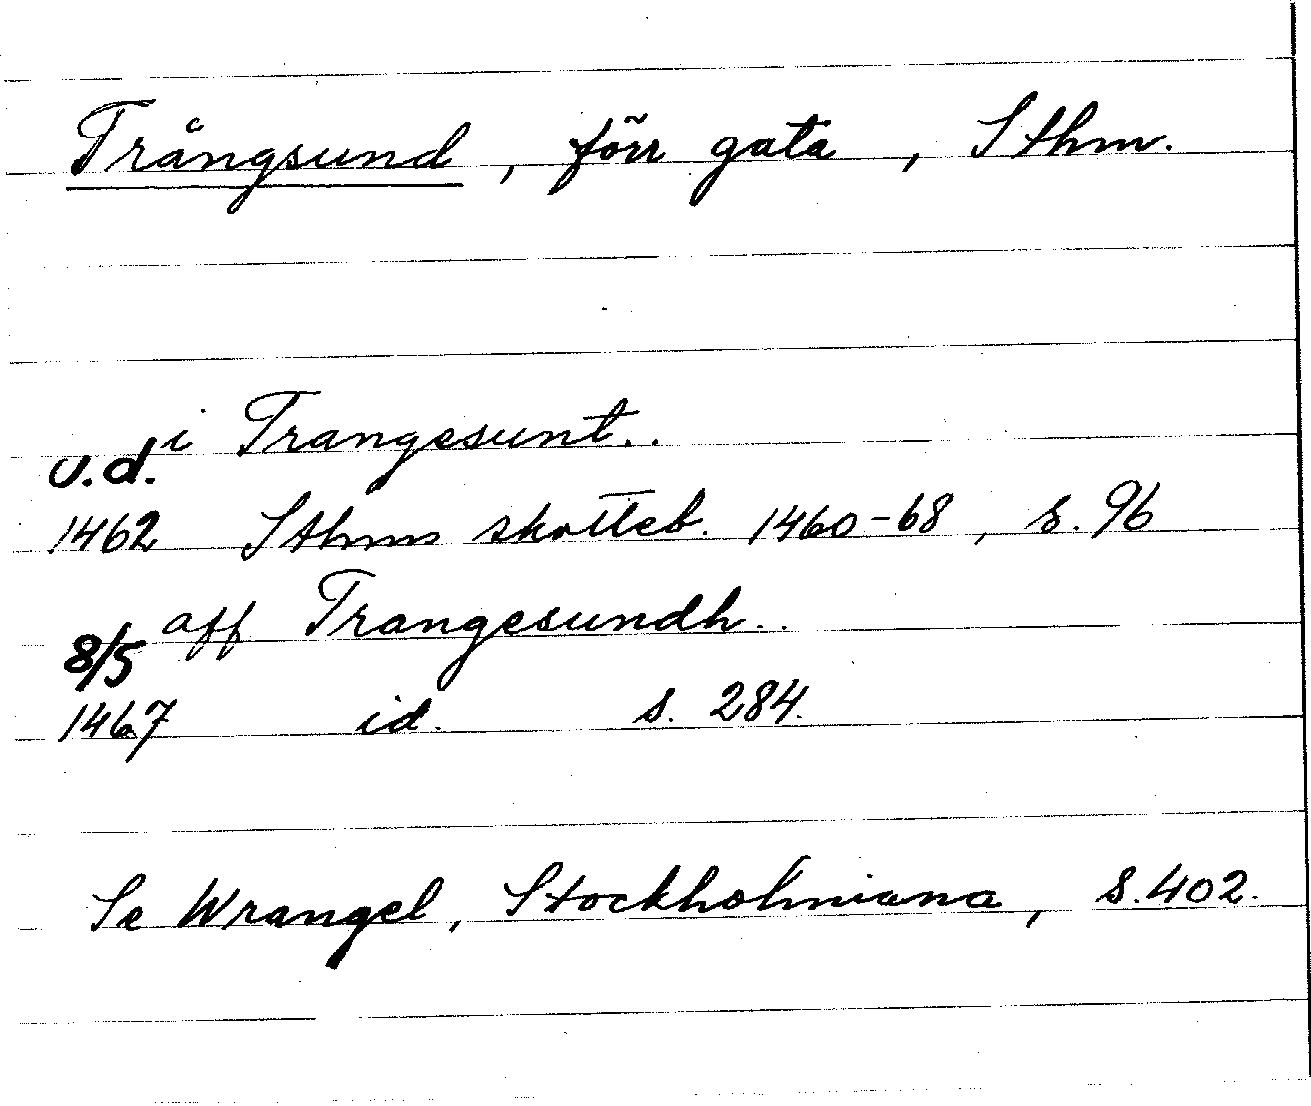 Trångsund, förr gata, Sthm.
i Trangesunt..
u.d.
1462 Sthms skotteb. 1460-68, s. 96
aff Trangesundh..
8/5
1467 id. s. 284.
Se Wrangel, Stockholmiana, s. 402.